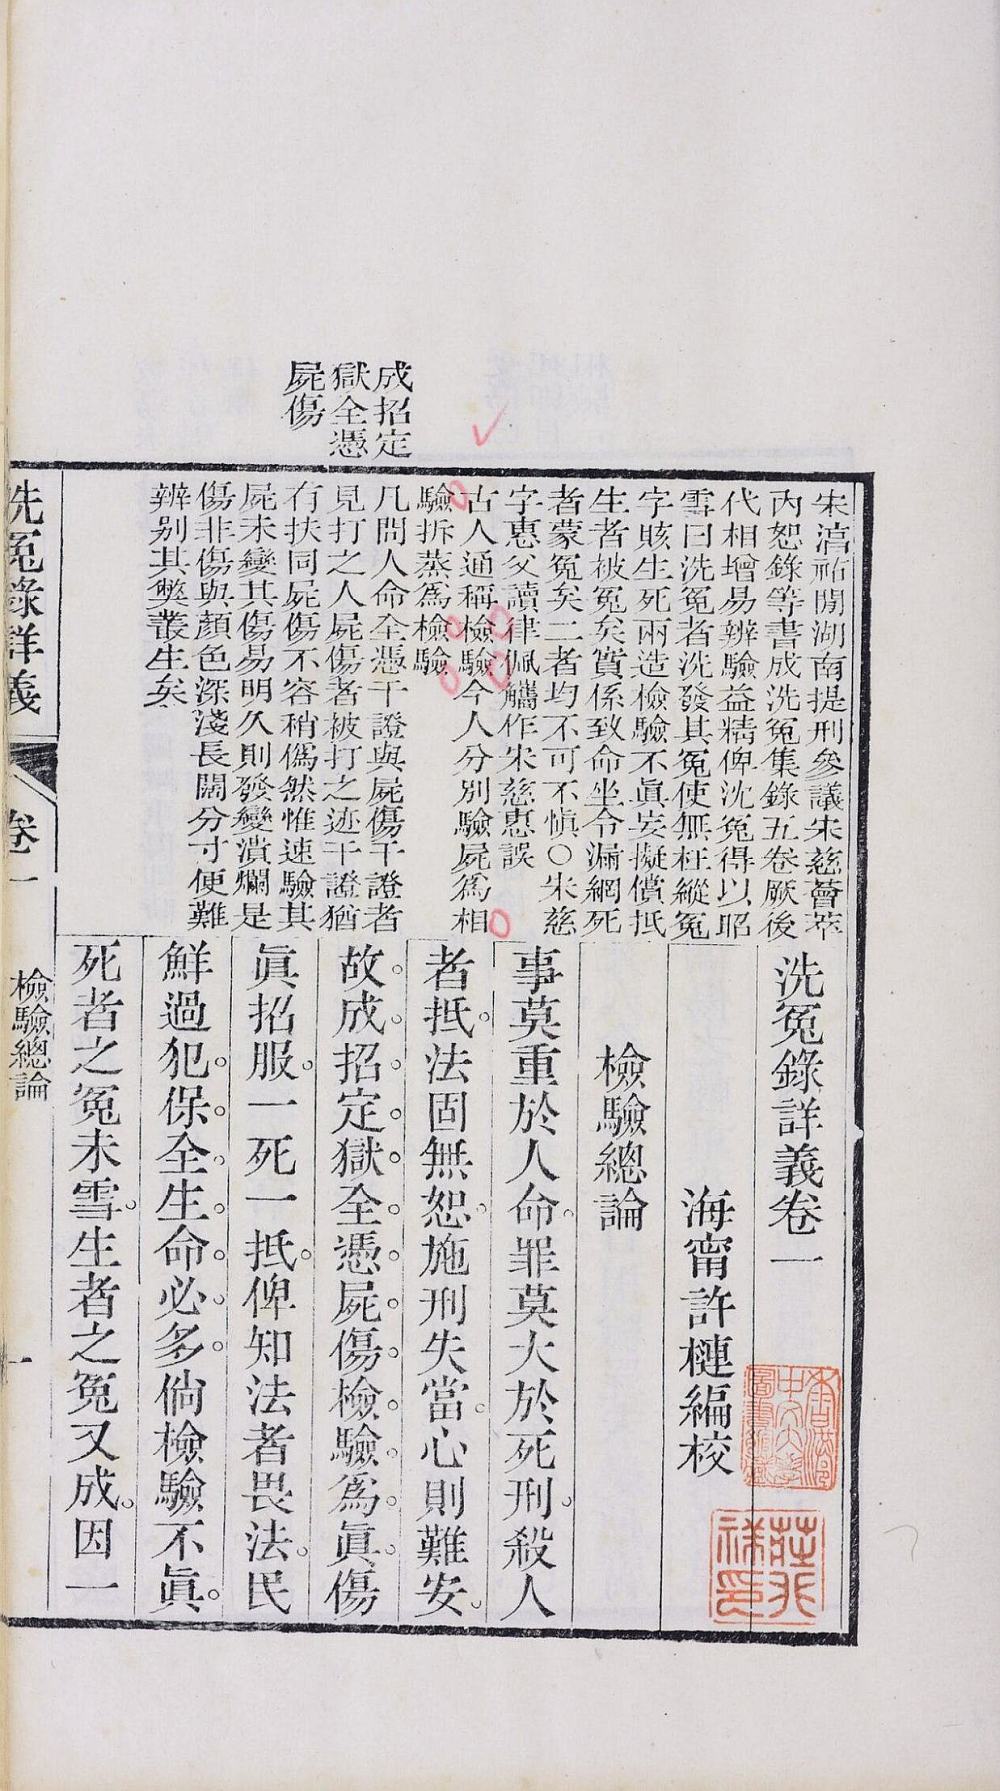 成招定
獄全憑
屍傷
宋淳祐閒湖南提刑參議宋慈薈萃
內恕錄等書成洗冤集錄五卷厥後
代相增易辨驗益精俾沈冤得以昭
雪曰洗冤者洗發其冤使無枉縱冤
字賅生死兩造檢驗不眞妄擬償抵
生者被冤矣質係致命坐令漏網死
者蒙冤矣二者均不可不愼○宋慈
字惠父讀律佩觿作宋慈惠誤
古人通稱檢驗今人分別驗屍爲相
驗拆蒸爲檢驗
凡問人命全憑干證與屍傷干證者
見打之人屍傷者被打之迹干證猶
有扶同屍傷不容稍僞然惟速驗其
屍未變其傷易明久則發變潰爛是
傷非傷與顏色深淺長闊分寸便難
辨別其獘叢生矣
洗冤錄詳義卷一
海甯許槤編校
檢驗總論
事莫重於人命。罪莫大於死刑。殺人
者抵。法固無恕。施刑失當。心則難安。
故。成。招。定。獄。全。憑。屍。傷。檢。驗。爲。眞。傷
眞招服。一死一抵。俾知法者畏法。民
鮮過犯。保。全。生。命。必。多。倘檢驗不眞。
死者之冤未雪。生者之冤又成。因一
洗冤錄詳義
卷一
檢驗總論
一